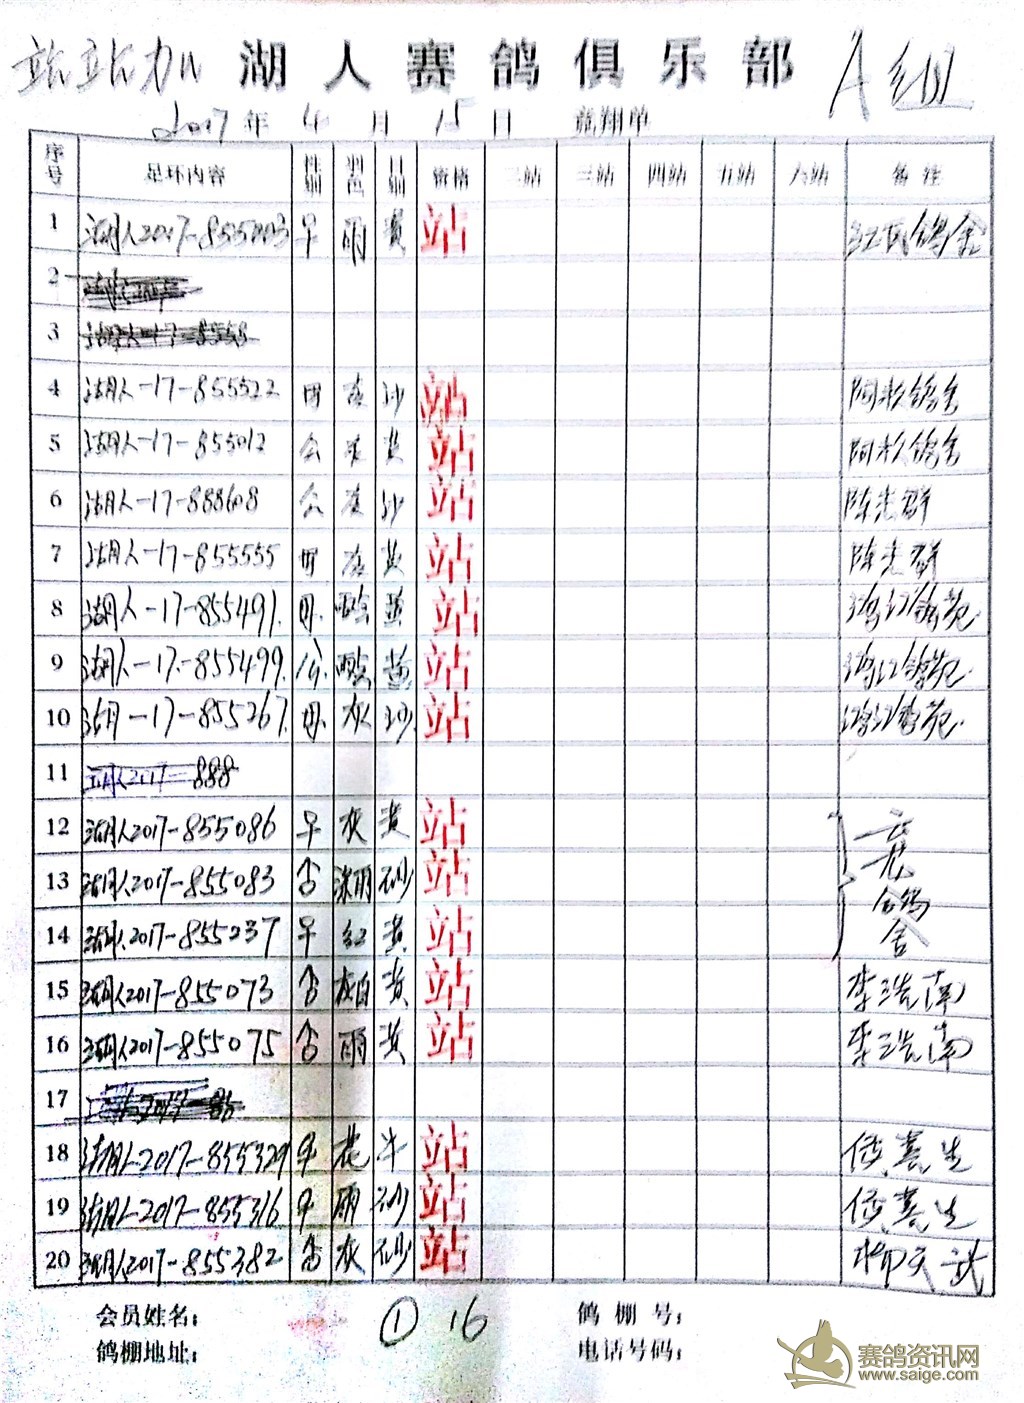 站站加 湖人赛鸽俱乐部 A组
2017年 4月 15日 竞翔单
序号 足环内容 性别 羽色 眼 资格 二站 三站 四站 五站 六站 备注
1 湖人2017-855003 早 雨 黄 站
2
3
4 湖人-17-855522 母 灰 沙 站
5 湖人-17-855012 公 灰 黄 站
6 湖人-17-888608 公 灰 沙 站 陈志群
7 湖人-17-855555 母 灰 黄 站 陈志群
8 湖人-17-855491. 母. 黄 站 鸿江鸽苑.
9 湖人-17-855499. 公. 黄 站 鸿江鸽苑.
10 湖人-17-855267. 母. 灰 沙. 站 鸿江鸽苑.
11 湖人2017-888
12 湖人2017-855086 早 灰 黄 站
13 湖人2017-855083 深雨 砂 站
14 湖人2017-855237 早 红 黄 站 鸽舍
15 湖人2017-855073 灰白 黄 站 李浩南
16 湖人2017-855075 雨 黄 站 李浩南
17
18 湖人-2017-855329 早 花 牛 站
19 湖人-2017-855316 早 雨 砂 站
20 湖人2017-855382 灰 砂 站
会员姓名： ① 16 鸽棚号：
鸽棚地址： 电话号码：
赛鸽资讯网
www.saige.com